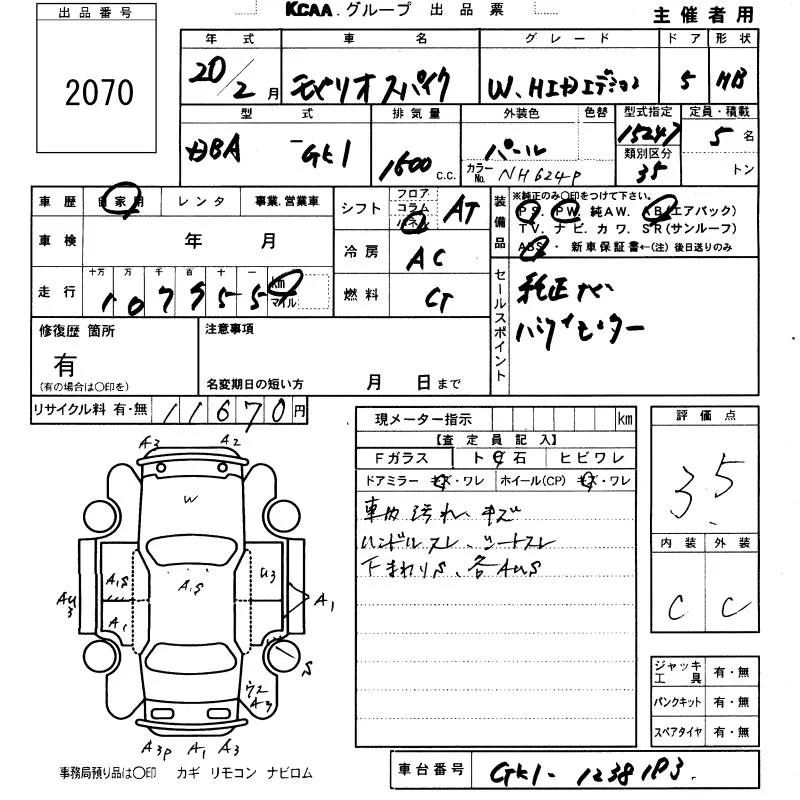 出品番号
2070
KCAA.グループ 出品票
主催者用
年式 車名 グレード ドア 形状
20/2月 モビリオスパイク W.HIDエディション 5 HB
型式 排気量 外装色 色替 型式指定 定員・積載
DBA-GK1 1500 c.c. パール 15247 5名
カラーNo. NH624P 類別区分 35 トン
車歴 自家用 レンタ 事業.営業車
シフト フロア コラム パネル AT
装備品 ※純正のみ〇印をつけて下さい。
PS. PW. 純AW. AB(エアバック)
TV. ナビ. カワ. SR(サンルーフ)
ABS・ 新車保証書←(注) 後日送りのみ
車検 年 月
冷房 AC
走行 十万 万 千 百 十 一 km マイル
107955
燃料
セールスポイント
純正ナビ
修復歴 箇所
有
(有の場合は〇印を)
注意事項
名変期日の短い方 月 日まで
リサイクル料 有・無 11670円
現メーター指示 km
【査定員記入】
Fガラス ト 石 ヒビワレ
ドアミラー キズ・ワレ ホイール(CP) キズ・ワレ
車内汚れ、キズ
ハンドルスレ、シートスレ
下まわりS、各AUS
評価点
3.5
内装 外装
C C
ジャッキ工具 有・無
パンクキット 有・無
スペアタイヤ 有・無
A3 A2
W
A,S
A,S U3
AU3 A1 A1
S
ウス A3
A3P A1 A3
事務局預り品は〇印 カギ リモコン ナビロム
車台番号 GK1-1238183